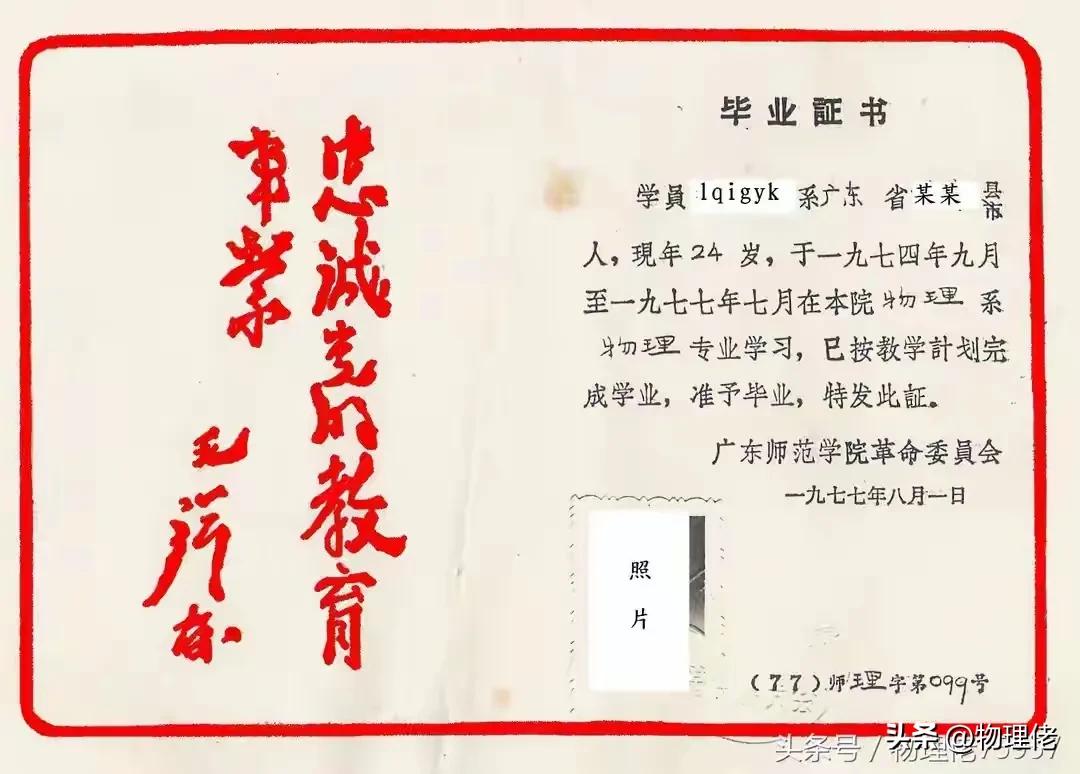 忠诚党的教育
事業
毛泽东
毕业証书
学員 lqigyk 系广东 省某某 县市
人，現年24 岁，于一九七四年九月
至一九七七年七月在本院物理 系
物理 专业学习，已按教学計划完
成学业，准予毕业，特发此証。
广东师范学院革命委員会
一九七七年八月一日
照
片
（77）师理字第099号
头条 @物理佬